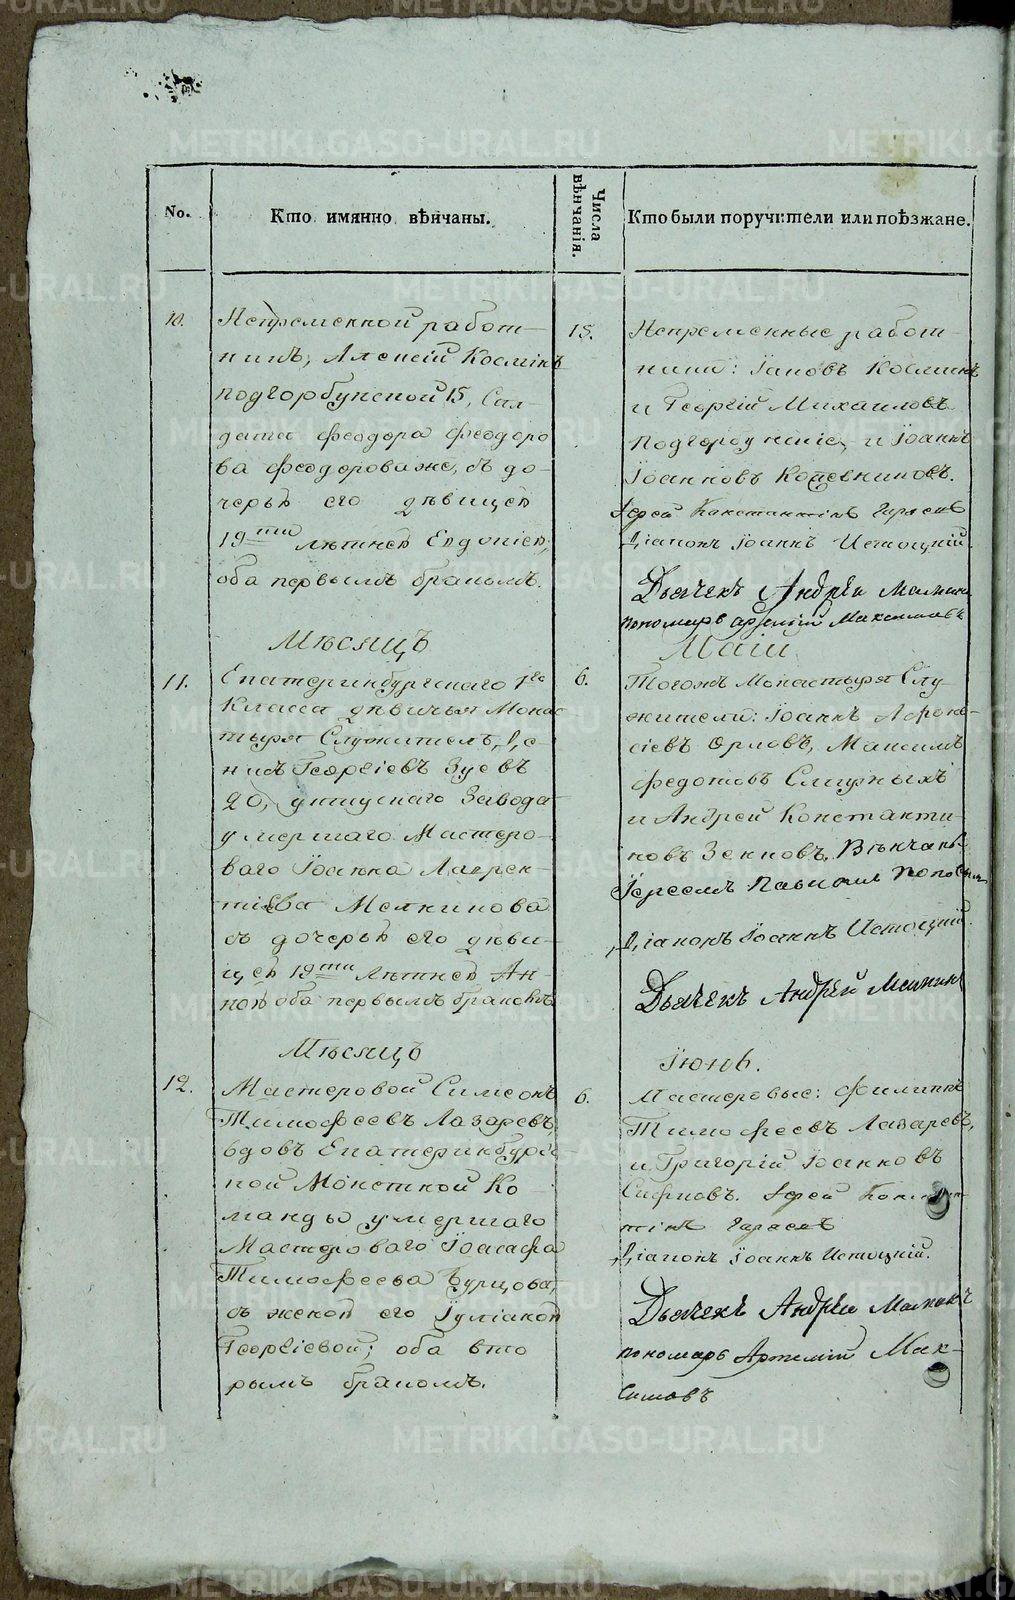 No.
Кто имянно вѣнчаны.
Числа вѣнчанія.
Кто были поручители или поѣзжане.
10.
Непременной работ-
никъ, Алексій Косминъ
подгорбунской 15, Сал-
дата Феодора Феодоро
ва Феодоровыхже, съ до-
черью его дѣвицею
19ти лѣтнею Евдокіею,
оба первымъ бракомъ.
15.
Непременные работ-
ники: Іаковъ Косминъ
и Георгій Михаиловъ
и Іоаннъ
Іоанновъ
Іерей Константинъ
Діаконъ Іоаннъ Истоцкій.
Дьячекъ Андрей
пономарь Артемій Максимовъ
Мѣсяцъ
Маій
11.
Екатеринбургскаго 1го
Класса дѣвичья Мона-
тыря Служитель,
Георгіевъ Зуевъ
20, уткускаго Завода
умершаго Мастеро-
ваго Іоанна Лаврен-
тіева Мелкинова
съ дочерью его дѣви-
цею 19ти лѣтнею Ан-
ною оба первымъ бракомъ
6.
Тогожъ Монастыря Слу-
жители: Іоаннъ Афона-
сіевъ Орловъ, Максимъ
Федотовъ
и Андрей Константи-
новъ Зенковъ, Вѣнчаны
Іереемъ Павломъ Поповымъ
Діаконъ Іоаннъ Истоцкій.
Дьячекъ Андрей
Мѣсяцъ
Іюнь.
12.
Мастеровой Симеонъ
Тимофеевъ Лазаревъ,
вдовъ Екатеринбургс-
кой Монетной Ко-
манды умершаго
Мастероваго Іоасафа
Тимофеева Бурцова,
съ женою его Іуліаною
Георгіевой; оба вто
рымъ бракомъ.
6.
Мастеровые: Филиппъ
Тимофеевъ Лазаревъ,
и Григорій Іоанновъ
Іерей Констан-
тинъ
Діаконъ Іоаннъ Истоцкій.
Дьячекъ Андрей
пономарь Артемій Мак-
симовъ
METRIKI.GASO-URAL.RU